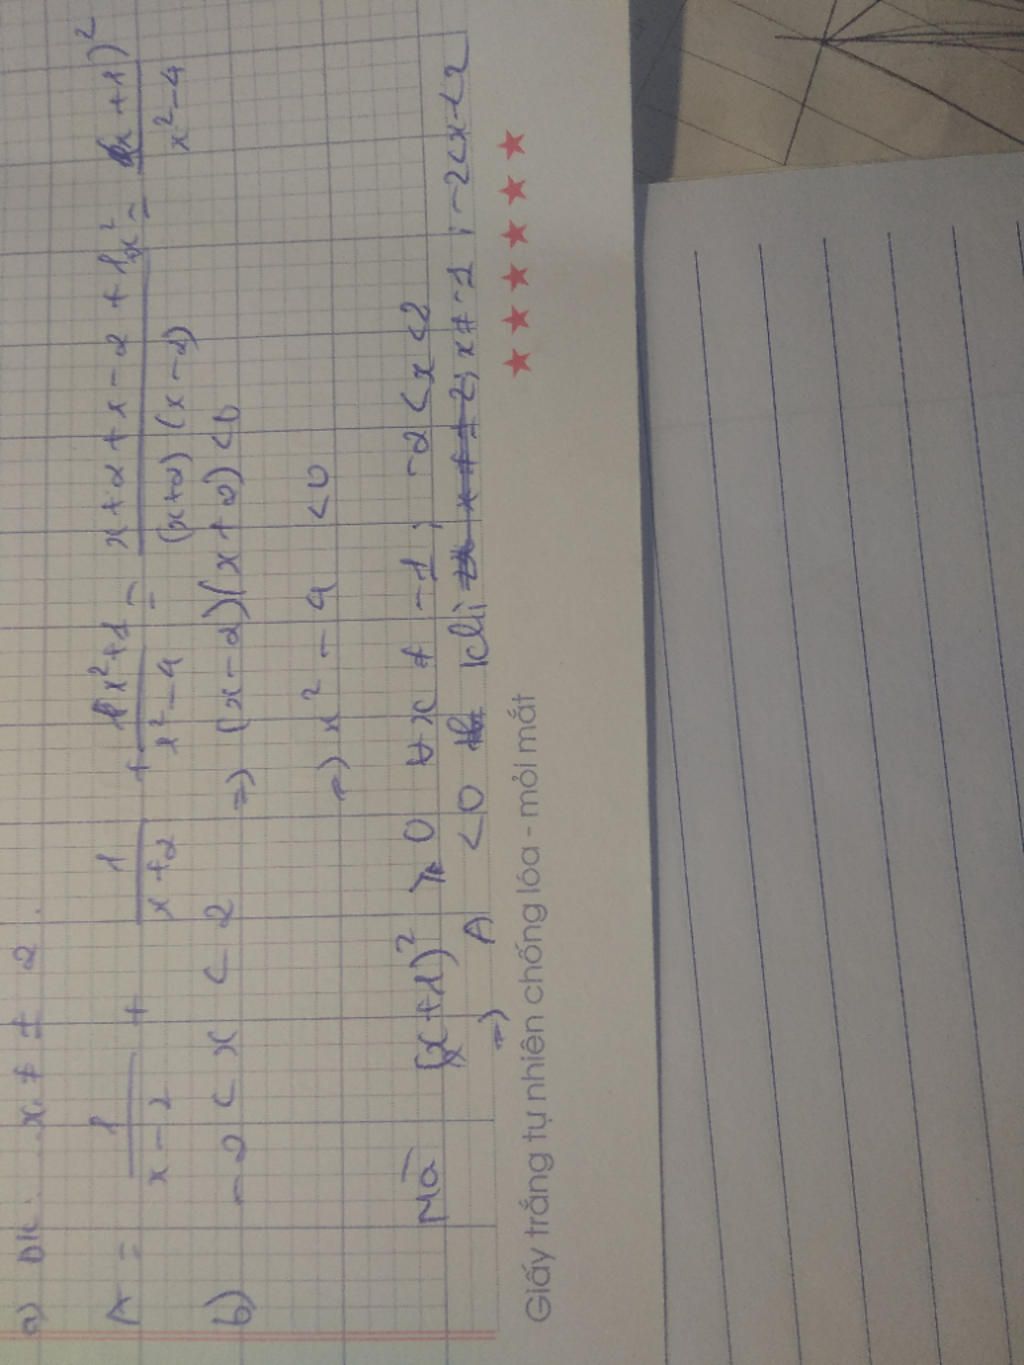 a) ĐK: x ≠ ± 2.
A = 1/(x-2) + 1/(x+2) + (x²+1)/(x²-4) = (x+2+x-2+1+x²)/((x+2)(x-2)) = (x+1)²/(x²-4)
b) -2 < x < 2 => (x-2)(x+2) < 0
=) x² - 4 < 0
Mà (x+1)² ≥ 0 ∀x ≠ -1; -2 < x < 2
=) A < 0 khi x ≠ -1; -2 < x < 2
Giấy trắng tự nhiên chống lóa - mỏi mắt